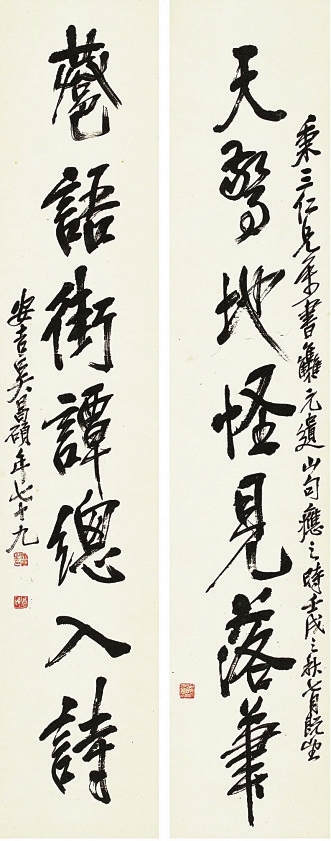 秉三仁兄索書集元遺山句應之時壬戌之秋七月既望
天驚地怪見落筆
巷語街譚總入詩
安吉吳昌碩年七十九